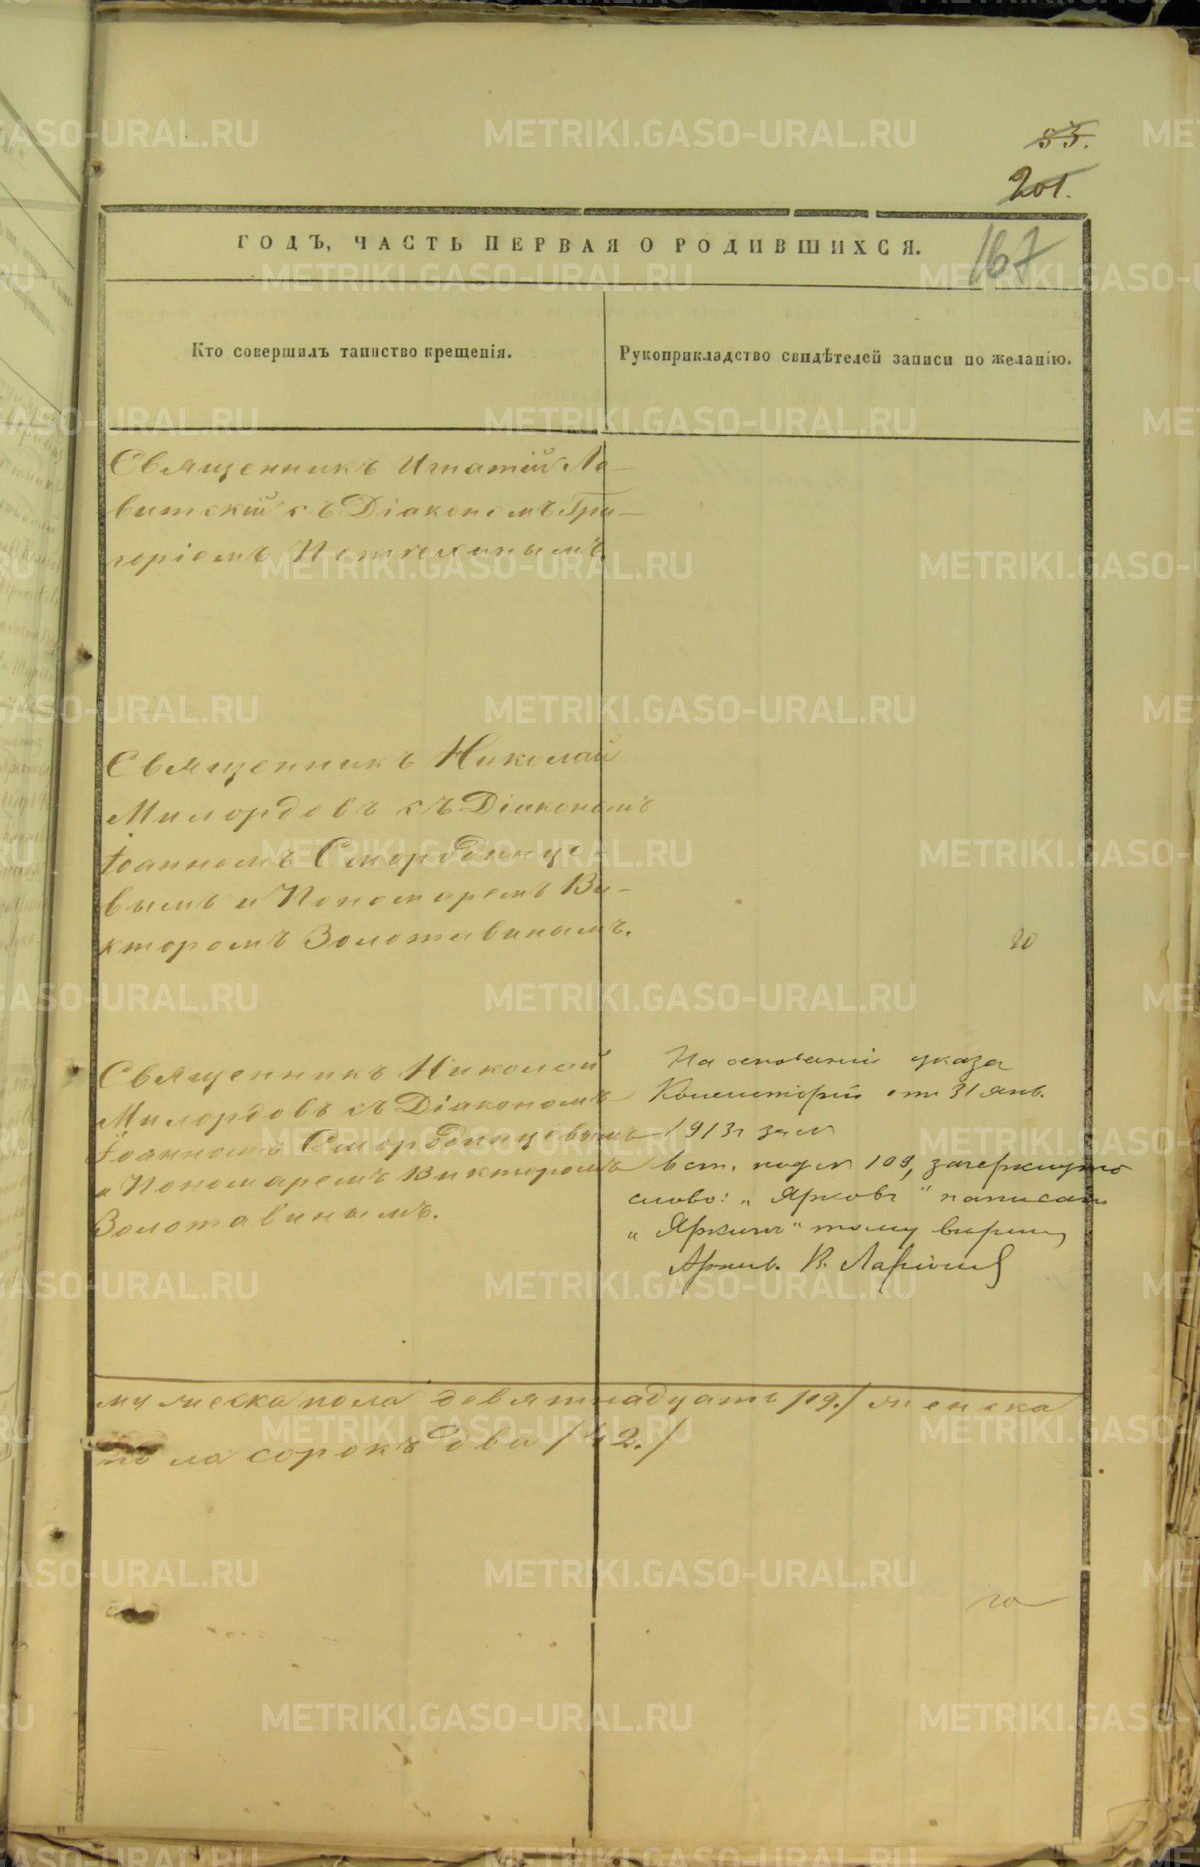 55.
201.
ГОДЪ, ЧАСТЬ ПЕРВАЯ О РОДИВШИХСЯ.
167
Кто совершилъ таинство крещенія.
Рукоприкладство свидѣтелей записи по желанію.
Священникъ Игнатій Ло-
витскій съ Діакономъ Гри-
горіемъ
Священникъ Николай
Милордовъ съ Діакономъ
Іоанномъ Смородинце-
вымъ и Пономаремъ Ви-
кторомъ Золотавинымъ.
20
Священникъ Николай
Милордовъ съ Діакономъ
Іоанномъ Смородинцевымъ
и Пономаремъ Викторомъ
Золотавинымъ.
На основаніи указа
Консисторіи отъ 31 янв.
1913 г за №
в ст. под № 109, зачеркнуто
слово: „Ярковъ" написано
„Яркинъ" тому верно
Архив. В.
мужеска пола девятнадцать /19./ женска
пола сорокъ два /42./
METRIKI.GASO-URAL.RU